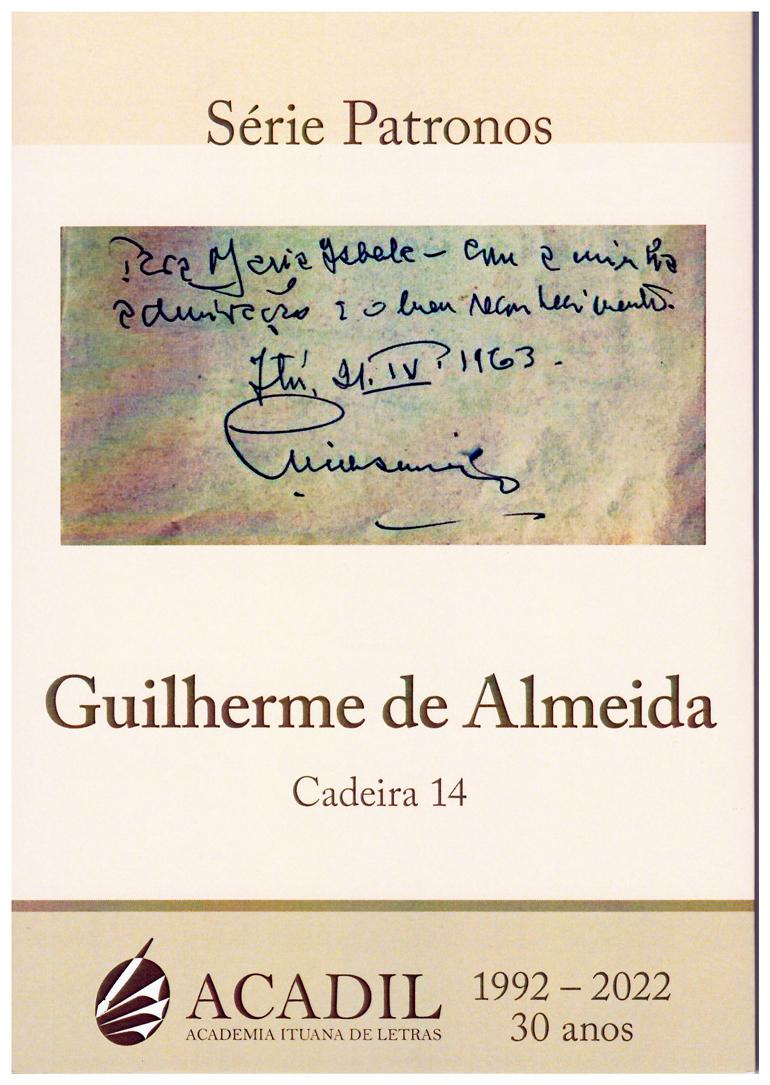 Série Patronos
Para Maria Isabel – com a minha
admiração e o bom reconhecimento.
Itú, 21.IV.1963.
Guilherme de Almeida
Cadeira 14
ACADIL
ACADEMIA ITUANA DE LETRAS
1992 – 2022
30 anos